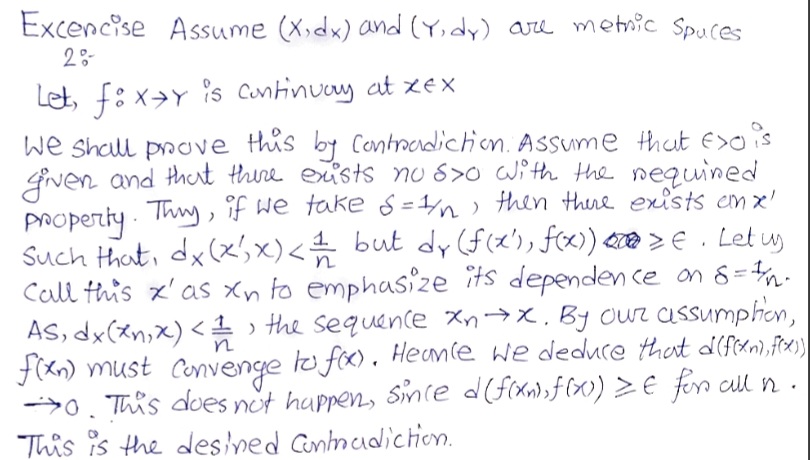 Excencise Assume (X,dx) and (Y,dY) are metric spaces
2:-
Let, f: X→Y is continuous at x∈X
We shall prove this by contradiction. Assume that ϵ>0 is
given and that there exists no δ>0 with the required
property. Thus, if we take δ=1/n, then there exists an x'
such that, dx(x',x)<1/n but dY(f(x'),f(x)) ≥ϵ. Let us
call this x' as xn to emphasize its dependence on δ=1/n.
As, dx(xn,x) < 1/n, the sequence xn→x. By our assumption,
f(xn) must converge to f(x). Heance we deduce that d(f(xn),f(x))
→0. This does not happen, since d(f(xn),f(x)) ≥ϵ for all n.
This is the desired contradiction.